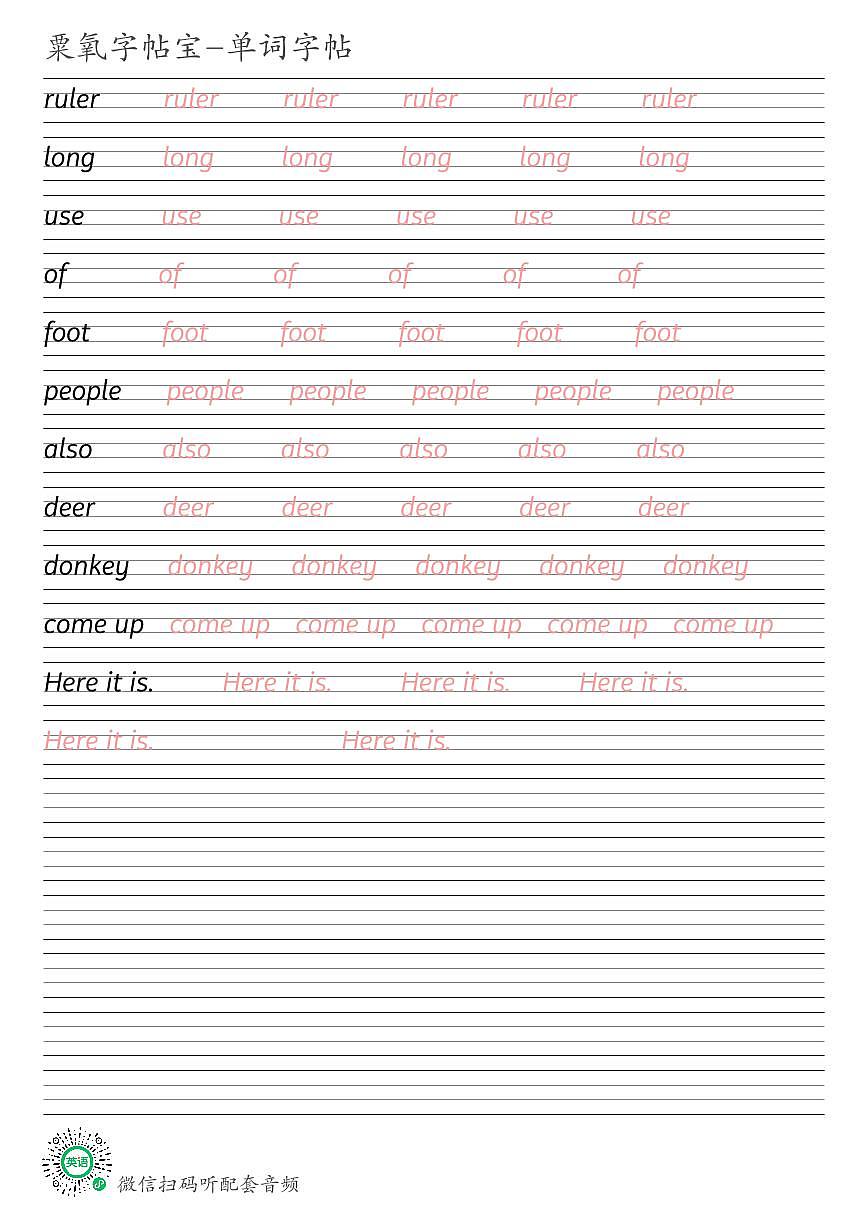 粟氧字帖宝-单词字帖
ruler ruler ruler ruler ruler ruler
long long long long long long
use use use use use use
of of of of of of
foot foot foot foot foot foot
people people people people people people
also also also also also also
deer deer deer deer deer deer
donkey donkey donkey donkey donkey donkey
come up come up come up come up come up come up
Here it is. Here it is. Here it is. Here it is.
Here it is. Here it is.
英语
微信扫码听配套音频